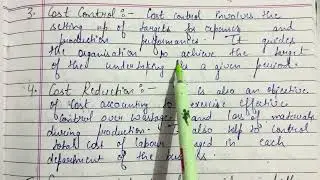 3. Cost Control :- Cost control involves the
setting up of targets for expenses and
production performances. It guides
the organisation to achieve the target
of the undertaking in a given period.
4. Cost Reduction :- is also an objective
of cost accounting to exercise effective
control over wastage and loss of materials
during production. also help to control
total cost of labour in each
department of the